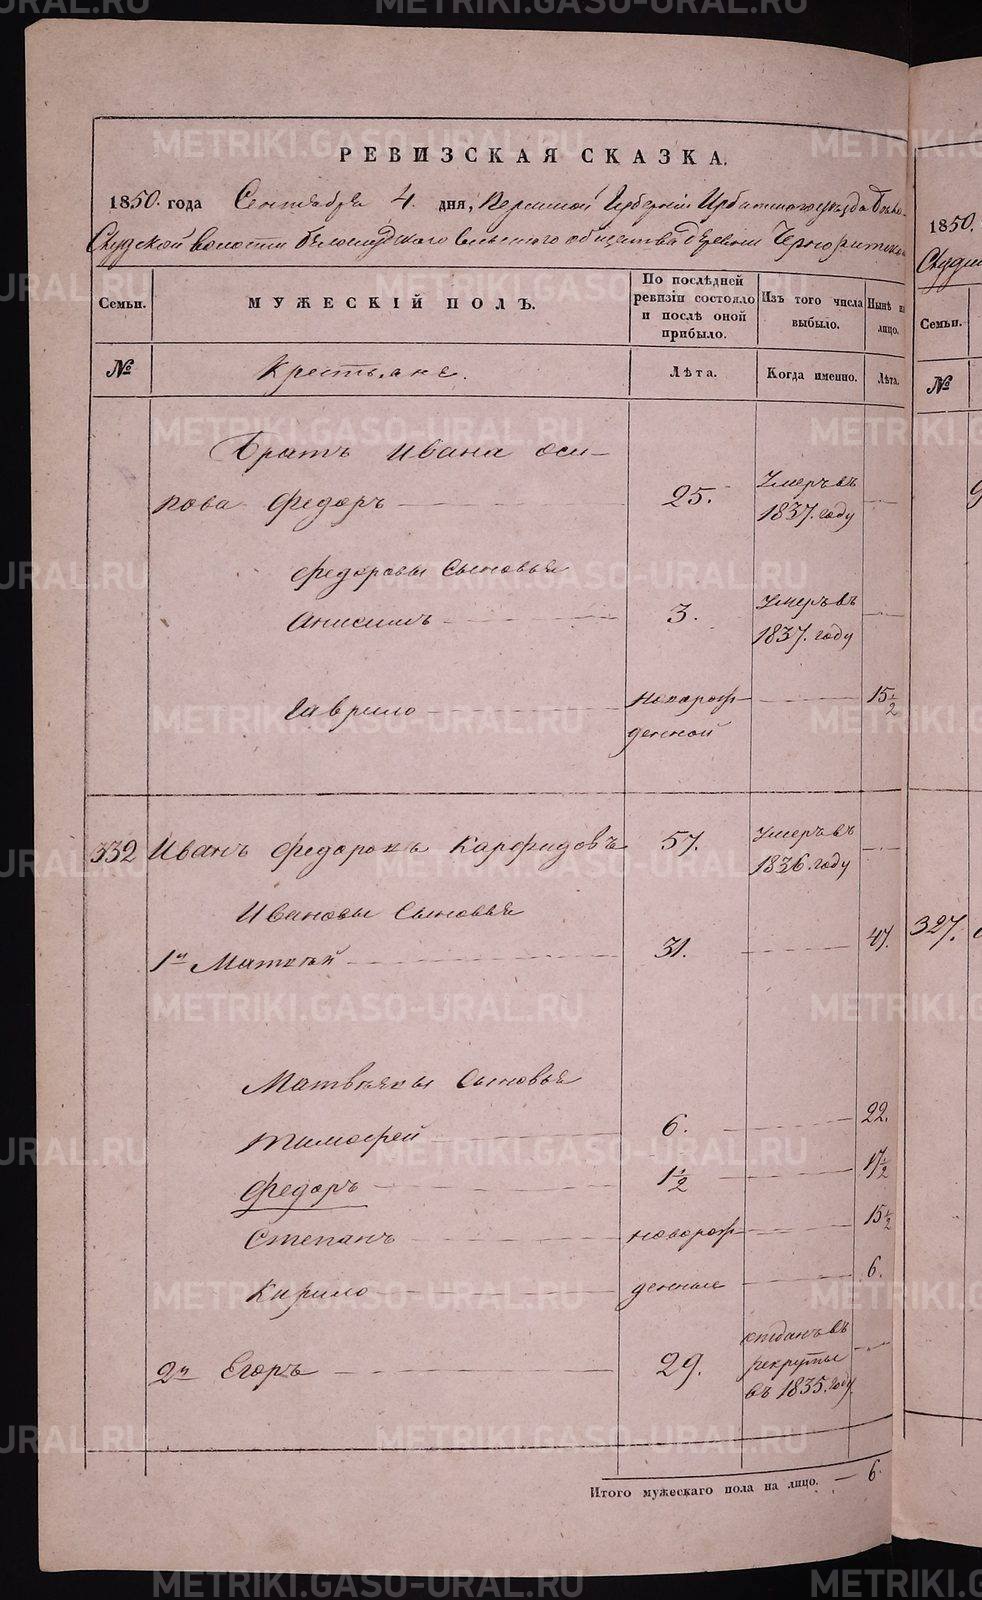 METRIKI.GASO-URAL.RU
РЕВИЗСКАЯ СКАЗКА.
1850. года Сентября 4. дня, Пермской Губерніи Ирбитскаго уѣзда Бѣло-
Слудской волости Бѣлослудскаго Сельскаго общества деревни
Семьи.
МУЖЕСКІЙ ПОЛЪ.
По послѣдней
ревизіи состояло
и послѣ оной
прибыло.
Изъ того числа
выбыло.
Нынѣ на
лицо.
№
Крестьяне.
Лѣта.
Когда именно.
Лѣта.
Братъ Ивана Оси-
пова Федоръ 25. Умеръ въ
1837. году
Федоровы Сыновья
Анисимъ 3. Умеръ въ
1837. году
Гаврило новорож- 15½
денной
332 Иванъ Федоровъ Карфидовъ 57. Умеръ въ
1836. году
Ивановы Сыновья
1й Матвѣй 31. 47.
Матвѣевы Сыновья
Тимофей 6. 22.
Федоръ 1½ 17½
Степанъ новорож- 15½
Кирило денные 6.
2й Егоръ 29. отданъ въ
рекруты
въ 1835. году
Итого мужескаго пола на лицо. — 6.
1850.
Слудск
Семьи.
№
327.